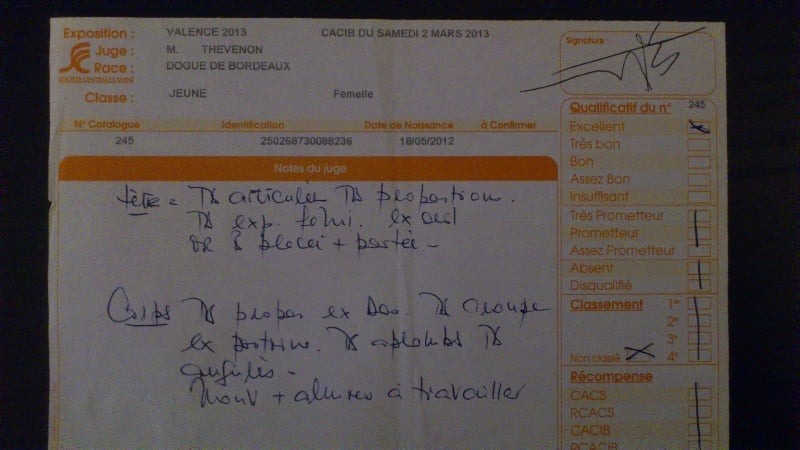 Exposition : VALENCE 2013 CACIB DU SAMEDI 2 MARS 2013
Juge : M. THEVENON
Race : DOGUE DE BORDEAUX
SOCIÉTÉ CENTRALE CANINE
Classe : JEUNE Femelle
N° Catalogue Identification Date de Naissance à Confirmer
245 250268730088236 18/05/2012
Notes du juge
tête = TB articulée TB proportion.
TB exp. fémi. ex œil
OR B placée + portée -
Corps TB propor ex Dos. TB croupe
ex poitrine. TB aplombs TB
angulés -
Mouv + allures à travailler
Signature :
Qualificatif du n° 245
Excellent
Très bon
Bon
Assez Bon
Insuffisant
Très Prometteur
Prometteur
Assez Prometteur
Absent
Disqualifié
Classement 1er
2e
3e
Non classé 4e
Récompense
CACS
RCACS
CACIB
RCACIB